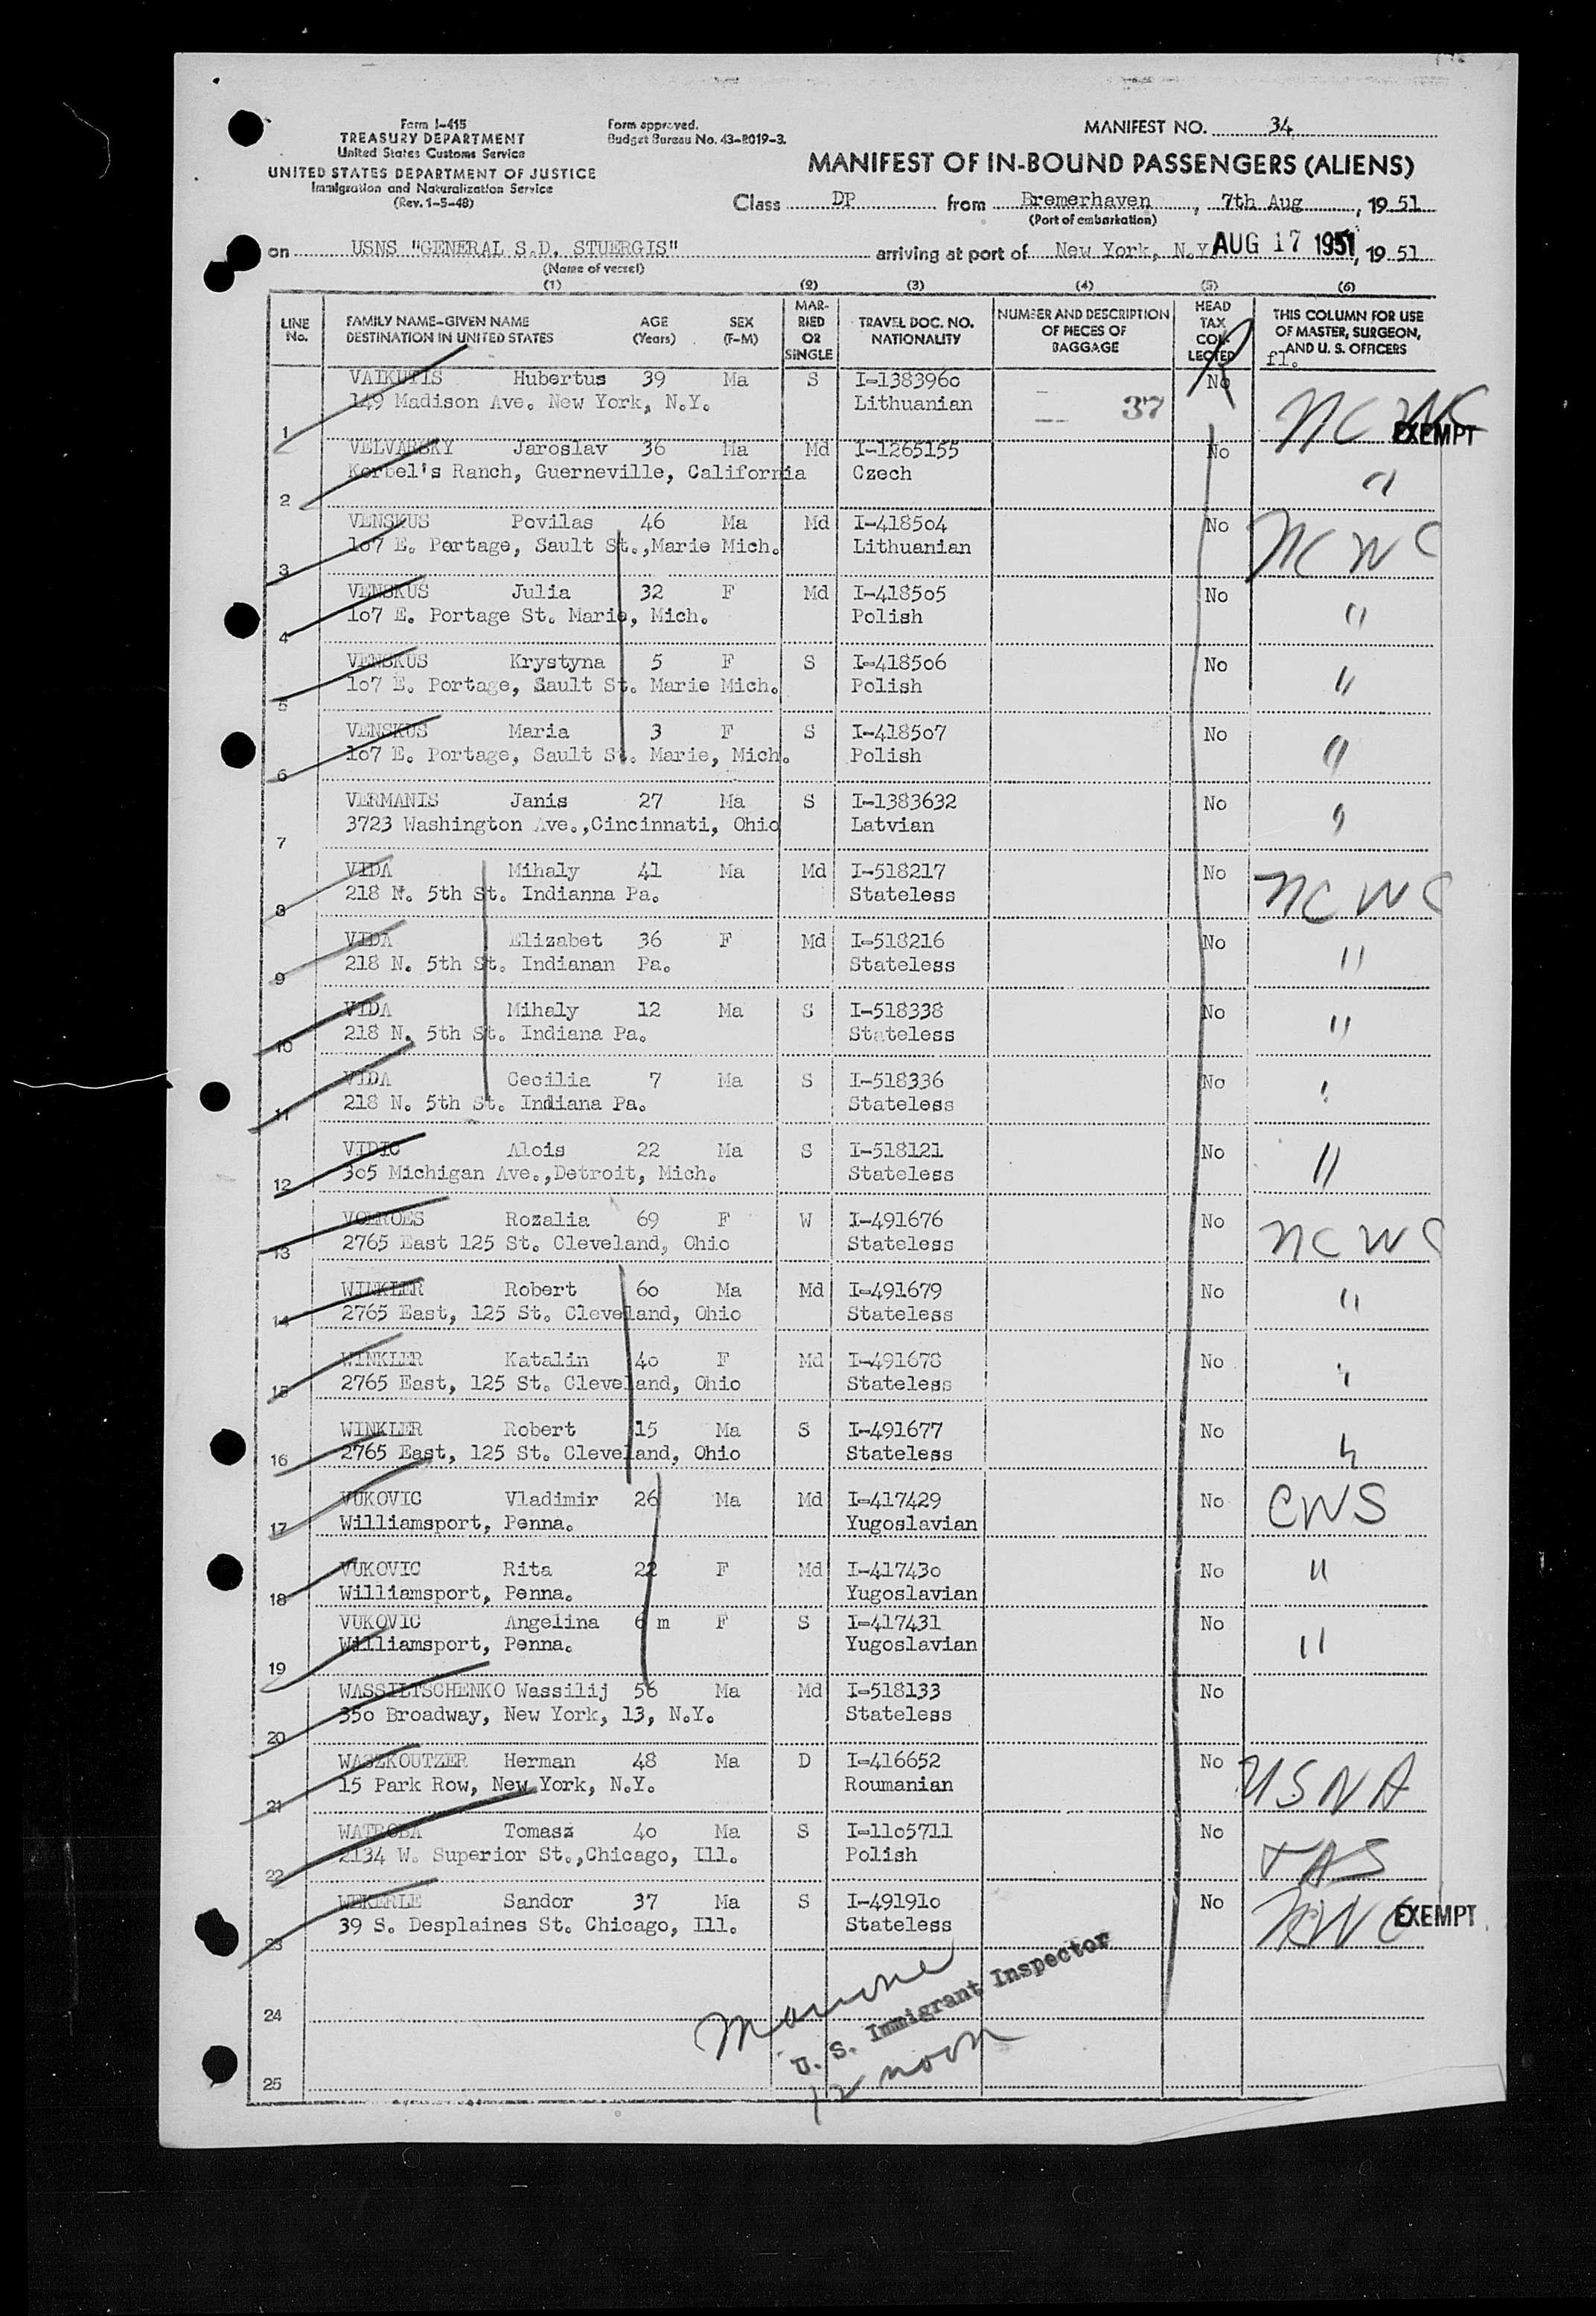 Form I-415
TREASURY DEPARTMENT
United States Customs Service
UNITED STATES DEPARTMENT OF JUSTICE
Immigration and Naturalization Service
(Rev. 1-5-48)
Form approved.
Budget Bureau No. 43-R019-3.
MANIFEST NO. 34
MANIFEST OF IN-BOUND PASSENGERS (ALIENS)
Class DP from Bremerhaven, 7th Aug, 19 51
(Port of embarkation)
on USNS "GENERAL S.D. STUERGIS" arriving at port of New York, N.Y. AUG 17 1951, 19 51
(Name of vessel)
(1) (2) (3) (4) (5) (6)
LINE No. FAMILY NAME-GIVEN NAME DESTINATION IN UNITED STATES AGE (Years) SEX (F-M) MARRIED OR SINGLE TRAVEL DOC. NO. NATIONALITY NUMBER AND DESCRIPTION OF PIECES OF BAGGAGE HEAD TAX COLLECTED THIS COLUMN FOR USE OF MASTER, SURGEON, AND U. S. OFFICERS
fl.
VAIKUTIS Hubertus 39 Ma S I-1383960 No
1 149 Madison Ave. New York, N.Y. Lithuanian 37 NCWC EXEMPT
VELVARSKY Jaroslav 36 Ma Md I-1265155 No
2 Korbel's Ranch, Guerneville, California Czech "
VENSKUS Povilas 46 Ma Md I-418504 No
3 107 E. Portage, Sault St.,Marie Mich. Lithuanian NCWC
VENSKUS Julia 32 F Md I-418505 No
4 107 E. Portage St. Marie, Mich. Polish "
VENSKUS Krystyna 5 F S I-418506 No
5 107 E. Portage, Sault St. Marie Mich. Polish "
VENSKUS Maria 3 F S I-418507 No
6 107 E. Portage, Sault St. Marie, Mich. Polish "
VERMANIS Janis 27 Ma S I-1383632 No
7 3723 Washington Ave.,Cincinnati, Ohio Latvian "
VIDA Mihaly 41 Ma Md I-518217 No
8 218 N. 5th St. Indianna Pa. Stateless NCWC
VIDA Elizabet 36 F Md I-518216 No
9 218 N. 5th St. Indianan Pa. Stateless "
VIDA Mihaly 12 Ma S I-518338 No
10 218 N. 5th St. Indiana Pa. Stateless "
VIDA Cecilia 7 Ma S I-518336 No
11 218 N. 5th St. Indiana Pa. Stateless "
VIDIC Alois 22 Ma S I-518121 No
12 305 Michigan Ave.,Detroit, Mich. Stateless "
VOEROES Rozalia 69 F W I-491676 No
13 2765 East 125 St. Cleveland, Ohio Stateless NCWC
WINKLER Robert 60 Ma Md I-491679 No
14 2765 East, 125 St. Cleveland, Ohio Stateless "
WINKLER Katalin 40 F Md I-491678 No
15 2765 East, 125 St. Cleveland, Ohio Stateless "
WINKLER Robert 15 Ma S I-491677 No
16 2765 East, 125 St. Cleveland, Ohio Stateless "
VUKOVIC Vladimir 26 Ma Md I-417429 No
17 Williamsport, Penna. Yugoslavian CWS
VUKOVIC Rita 22 F Md I-417430 No
18 Williamsport, Penna. Yugoslavian "
VUKOVIC Angelina 6 m F S I-417431 No
19 Williamsport, Penna. Yugoslavian "
WASSILTSCHENKO Wassilij 56 Ma Md I-518133 No
20 350 Broadway, New York, 13, N.Y. Stateless
WASZKOUTZER Herman 48 Ma D I-416652 No
21 15 Park Row, New York, N.Y. Roumanian USNA
WATROBA Tomasz 40 Ma S I-1105711 No
22 2134 W. Superior St.,Chicago, Ill. Polish
WEKERLE Sandor 37 Ma S I-491910 No
23 39 S. Desplaines St. Chicago, Ill. Stateless EXEMPT
24
U. S. Immigrant Inspector
12 noon
25